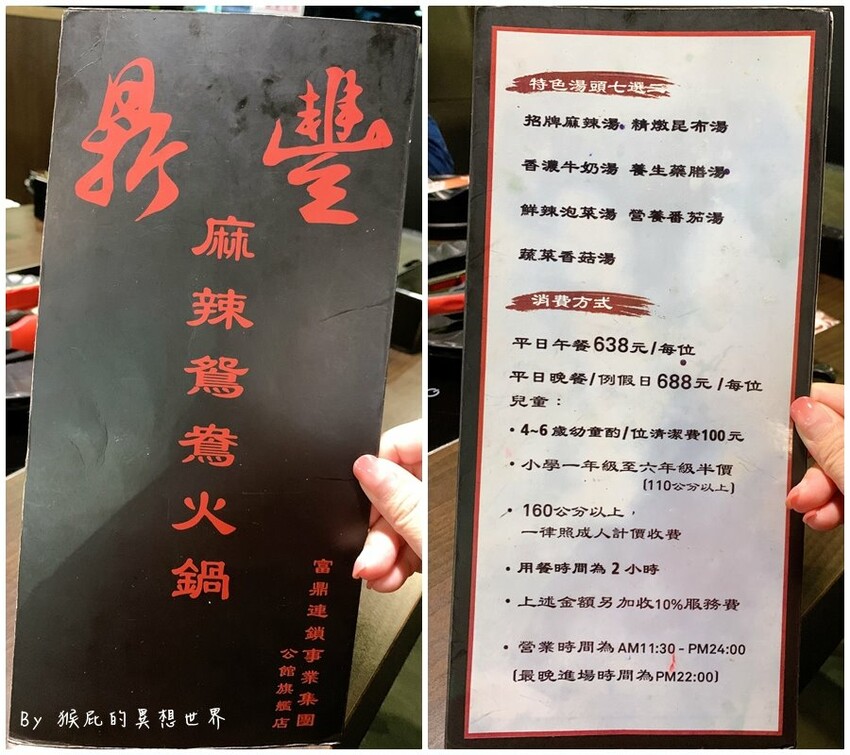 鼎豐
麻辣鴛鴦火鍋
富鼎連鎖事業集團
公館旗艦店
By 猴屁的異想世界
特色湯頭七選二
招牌麻辣湯 精燉昆布湯
香濃牛奶湯 養生藥膳湯
鮮辣泡菜湯 營養番茄湯
蔬菜香菇湯
消費方式
平日午餐638元/每位
平日晚餐/例假日688元/每位
兒童：
•4~6歲幼童酌/位清潔費100元
•小學一年級至六年級半價
(110公分以上)
•160公分以上，
一律照成人計價收費
•用餐時間為2小時
•上述金額另加收10%服務費
•營業時間為AM11:30-PM24:00
(最晚進場時間為PM22:00)